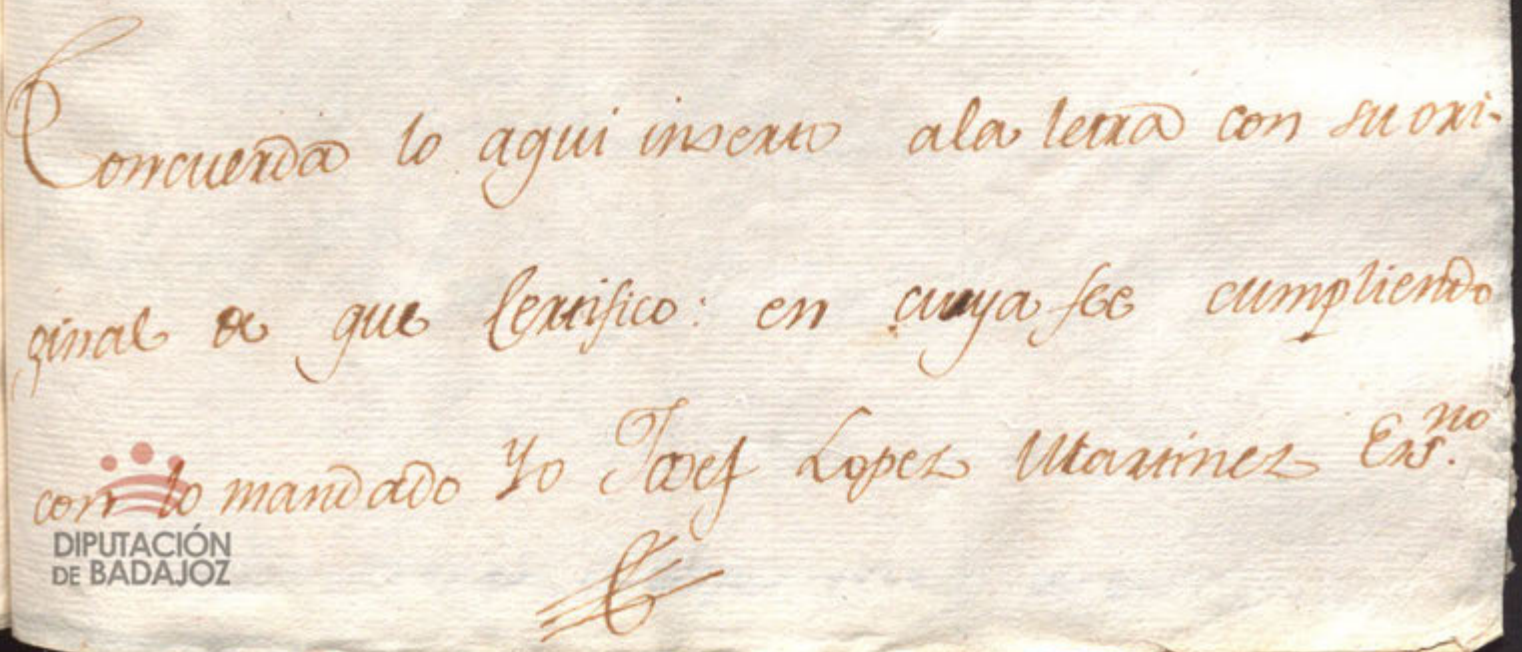 Concuerda lo aqui inserto ala letra con su ori-
ginal de que Certifico: en cuya fee cumpliendo
con lo mandado Yo Josef Lopez Martinez Ess.no
DIPUTACIÓN
DE BADAJOZ